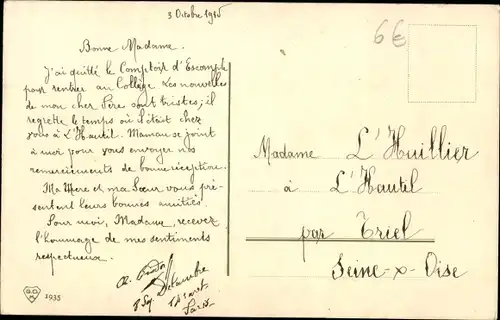 3 Octobre 1915
6€
Bonne Madame.
J'ai quitté le Comptoir d'Escompte
pour rentrer au Collège. Les nouvelles
de mon cher Père sont tristes; il
regrette le temps où il était chez
vous à L'Hautil. Maman se joint
à moi pour vous envoyer nos
remerciements de bonne réception.
Ma Mère et ma Sœur vous pré-
sentent leurs bonnes amitiés.
Pour moi, Madame, recevez
l'hommage de mes sentiments
respectueux.
Delambre
Paris
Madame L'Huillier
à L'Hautil
par Triel
Seine-x-Oise
1935